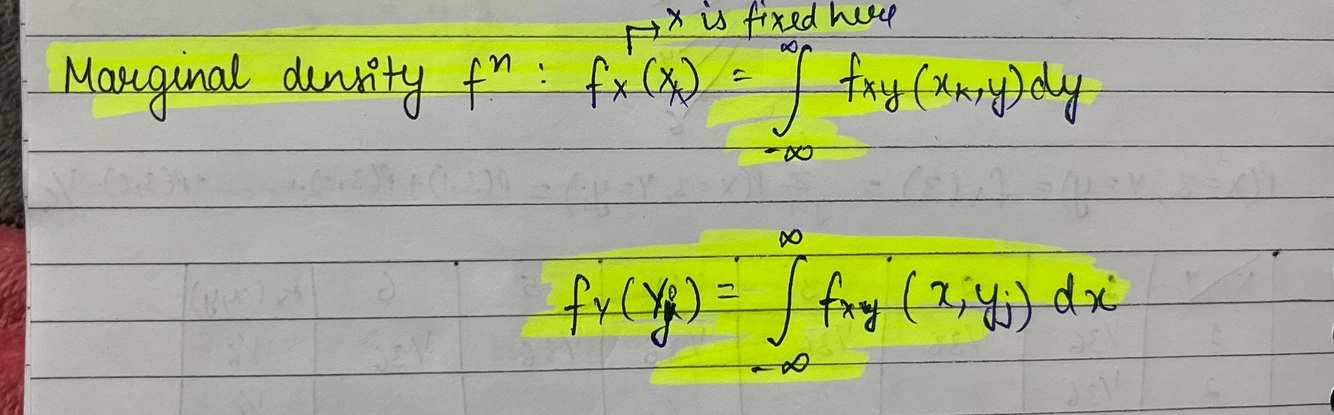 x is fixed here
Marginal density fⁿ : fx(xₖ) = ∫_{-∞}^{∞} fxy(xₖ,y)dy
fY(yⱼ) = ∫_{-∞}^{∞} fxy (x, yⱼ) dx